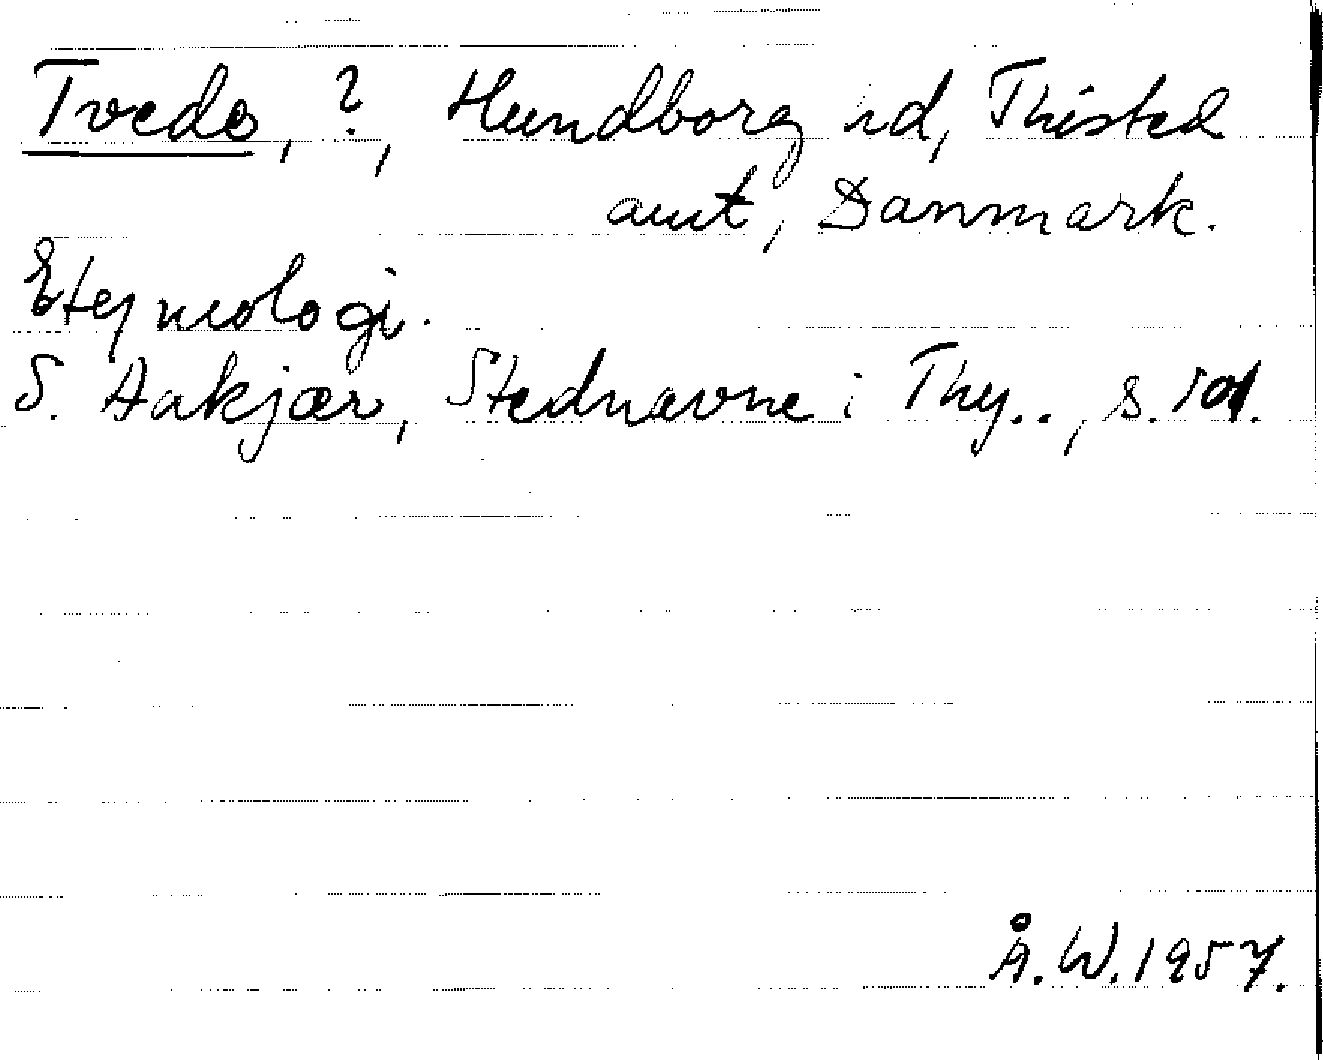 Tvede, ?, Hundborg hd, Thisted
amt, Danmark.
Etymologi.
S. Aakjær, Stednavne i Thy.., s.
Å.W. 1957.